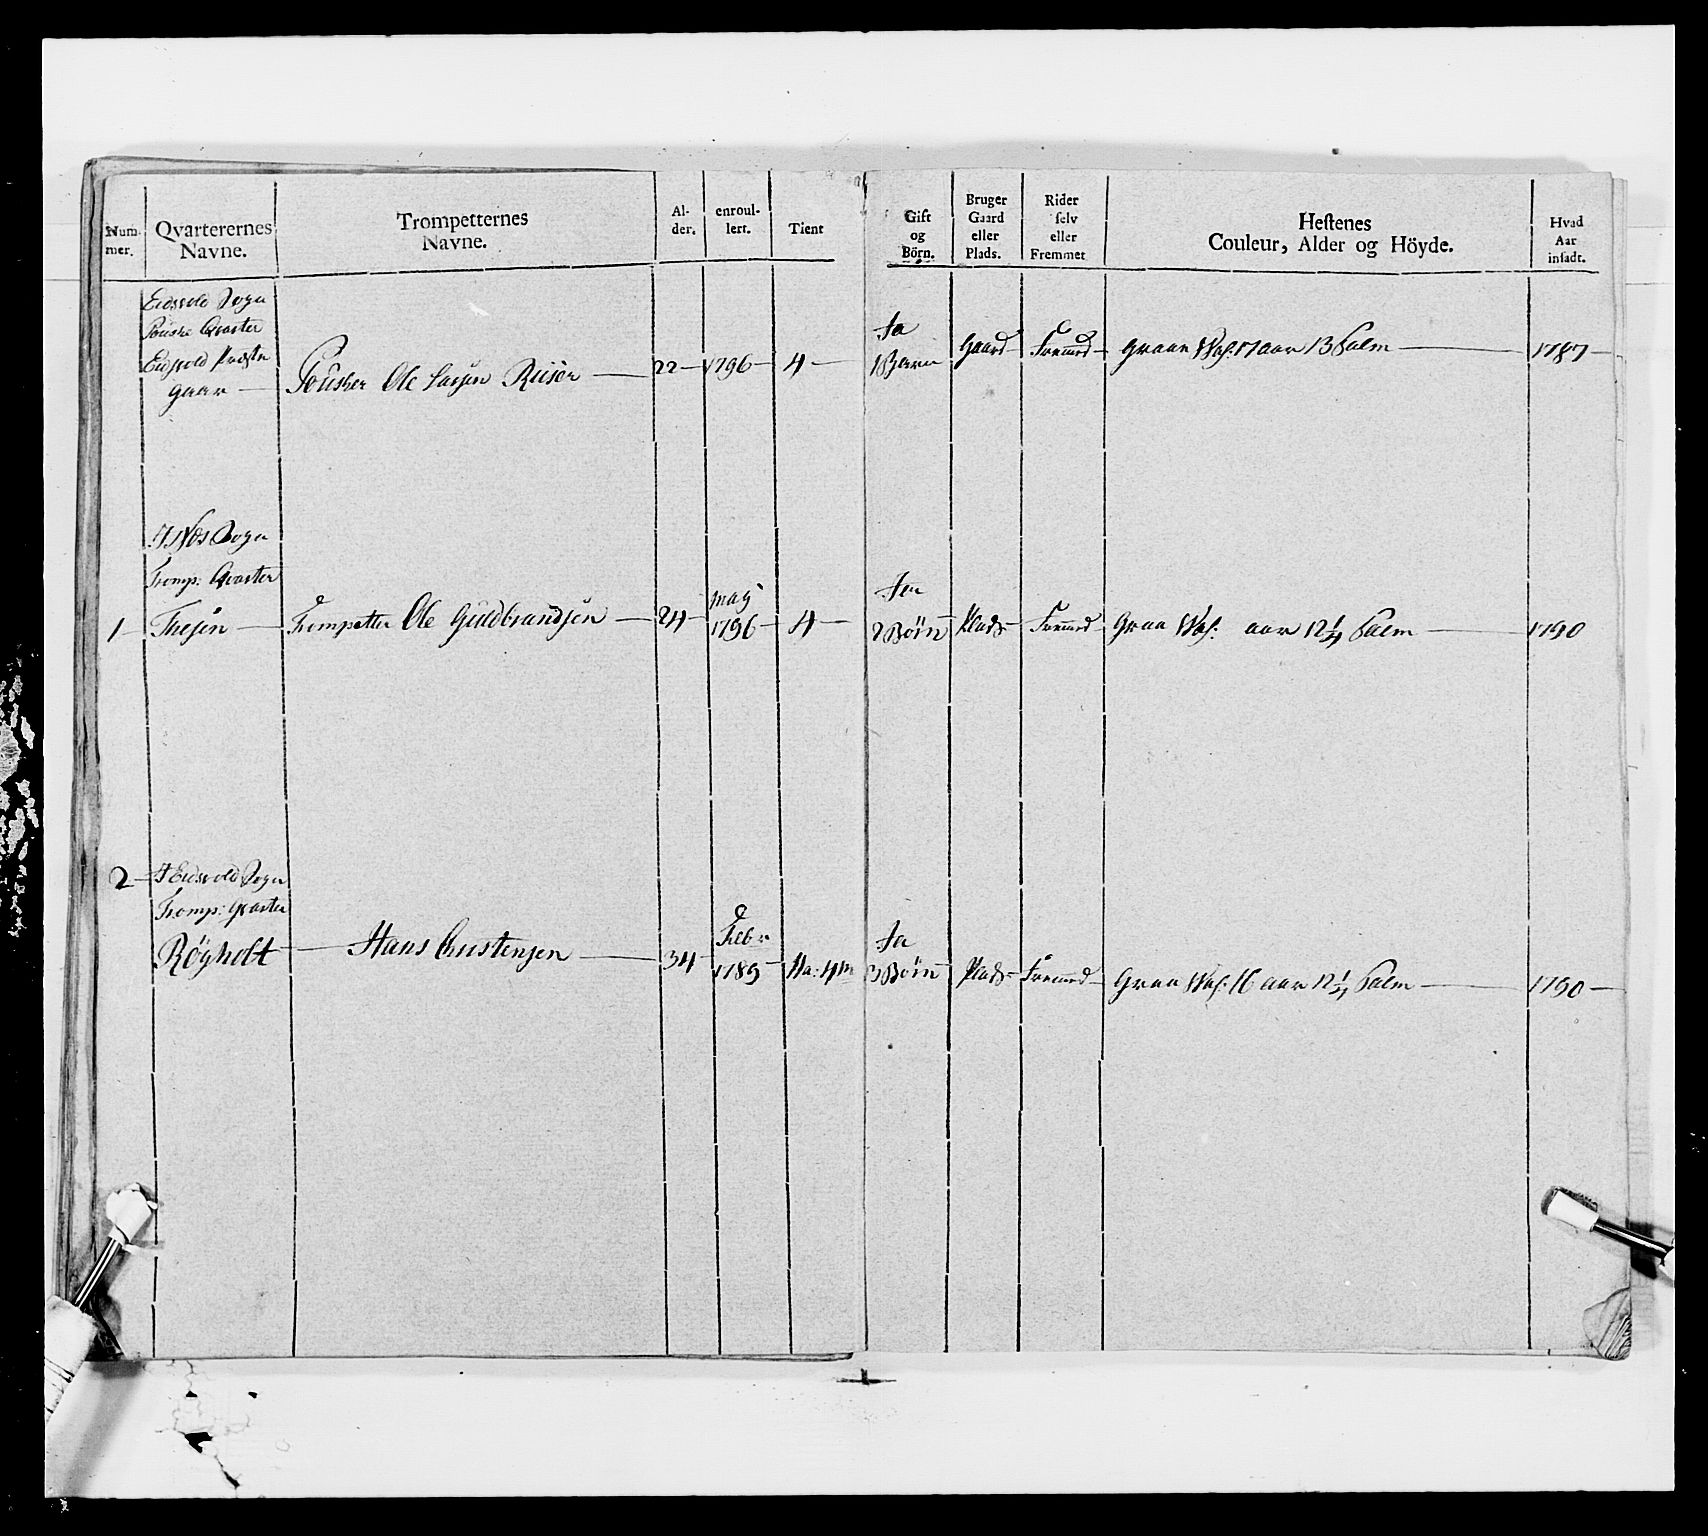 Num-
mer.
Qvarterernes
Navne.
Trompetternes
Navne.
Al-
der.
enroul-
lert.
Tient
Gift
og
Börn.
Bruger
Gaard
eller
Plads.
Rider
selv
eller
Fremmet
Hestenes
Couleur, Alder og Höyde.
Hvad
Aar
insadt.
Eidsvold Sogn
Qvarter
Eidsvold Præste
gaar
Ole Riisøe 22 1796 4
Ja
1 Barn Gaard Fremmed graae 17 aar 13 Palm 1787
I Næs Sogn
Tromp: Qvarter
1 Thesen Trompetter Ole Guldbrandsen 24
may
1796 4
Jaa
2 Børn Plads Fremmed Graa aar 12 1/4 Palm 1790
2 I Eidsvold Sogn
Tromp: Qvarter
Röyholt Hans Christensen 34
Febr
1789
Ja
3 Børn Plads Fremmed Graa 16 aar 12 1/4 Palm 1790